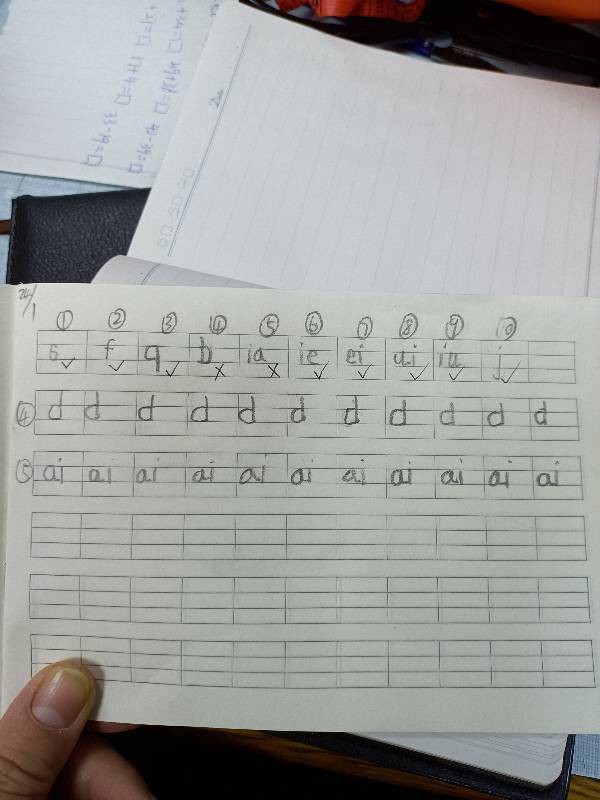 24/1
① ② ③ ④ ⑤ ⑥ ⑦ ⑧ ⑨ ⑩
s✓ f✓ q✓ b× ia× ie✓ ei✓ ui✓ iu✓ j✓
④ d d d d d d d d d d d
⑤ ai ai ai ai ai ai ai ai ai ai ai